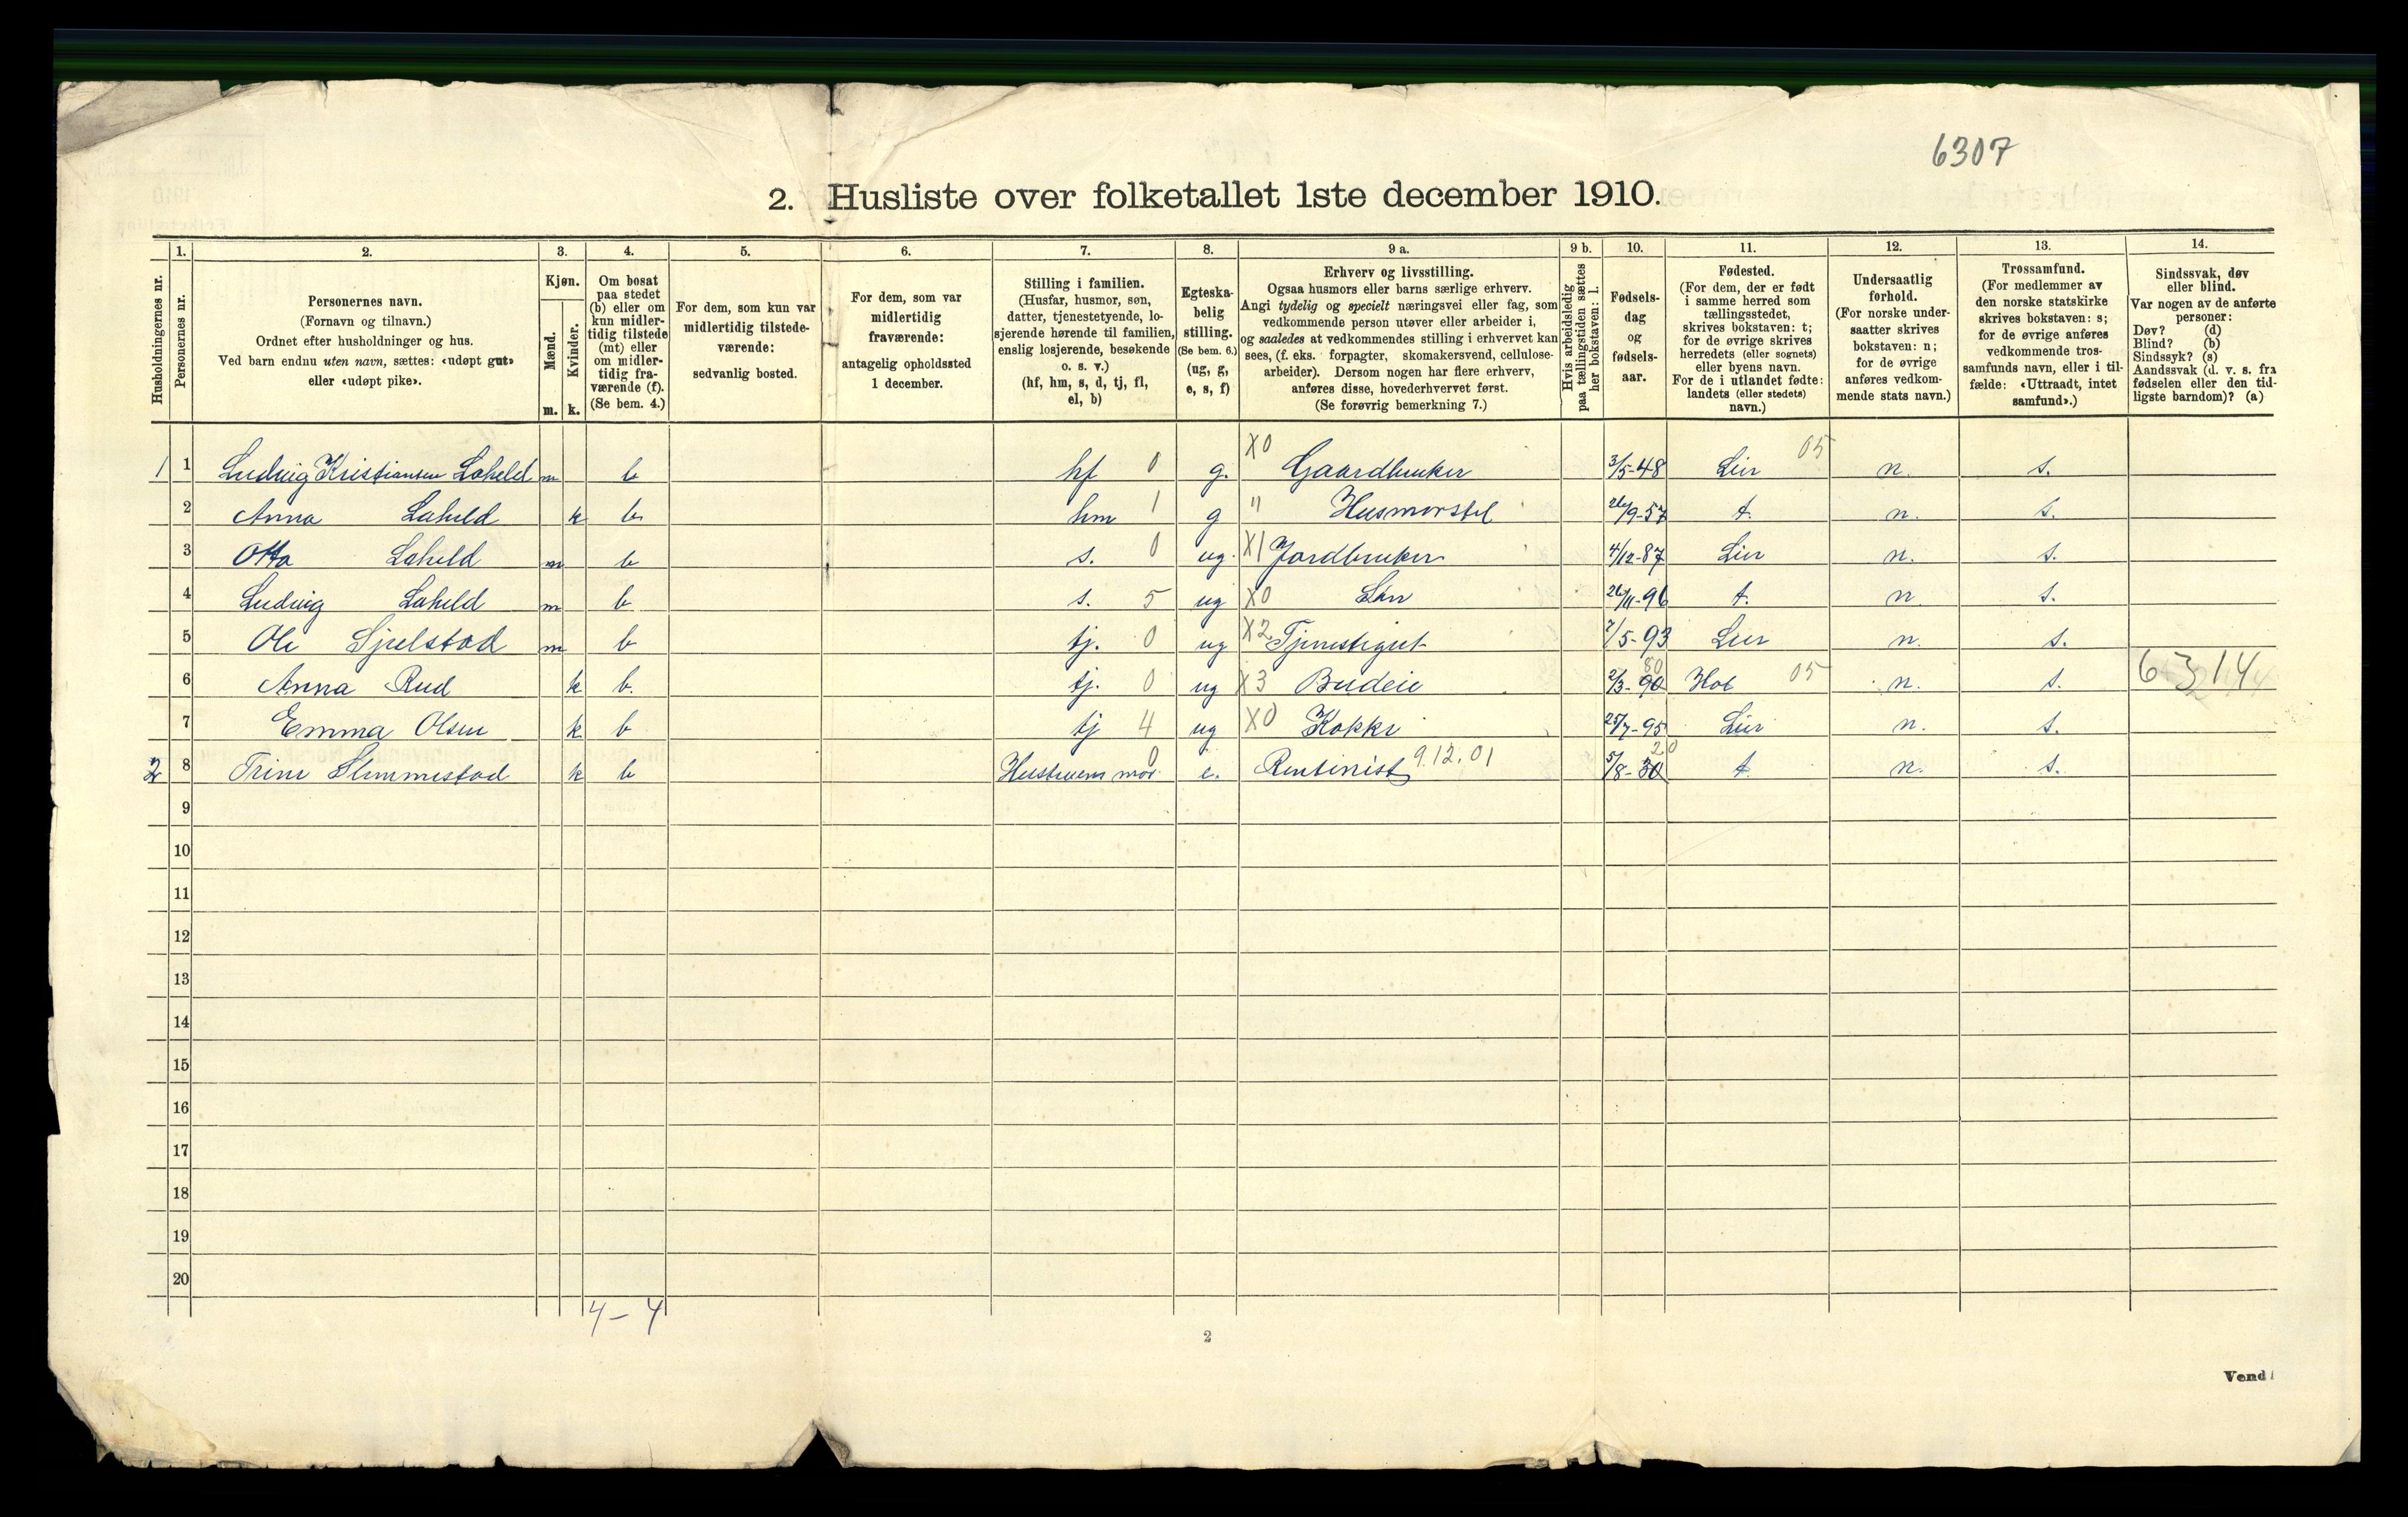 6307
2. Husliste over folketallet 1ste december 1910.
1. 2. 3. 4. 5. 6. 7. 8. 9 a. 9 b. 10. 11. 12. 13. 14.
Husholdningernes nr.
Personernes nr.
Personernes navn.
(Fornavn og tilnavn.)
Ordnet efter husholdninger og hus.
Ved barn endnu uten navn, sættes: «udøpt gut»
eller «udøpt pike».
Kjøn.
Mænd.
Kvinder.
m. k.
Om bosat
paa stedet
(b) eller om
kun midler-
tidig tilstede
(mt) eller
om midler-
tidig fra-
værende (f).
(Se bem. 4.)
For dem, som kun var
midlertidig tilstede-
værende:
sedvanlig bosted.
For dem, som var
midlertidig
fraværende:
antagelig opholdssted
1 december.
Stilling i familien.
(Husfar, husmor, søn,
datter, tjenestetyende, lo-
sjerende hørende til familien,
enslig losjerende, besøkende
o. s. v.)
(hf, hm, s, d, tj, fl,
el, b)
Egteska-
belig
stilling.
(Se bem. 6.)
(ug, g,
e, s, f)
Erhverv og livsstilling.
Ogsaa husmors eller barns særlige erhverv.
Angi tydelig og specielt næringsvei eller fag, som
vedkommende person utøver eller arbeider i,
og saaledes at vedkommendes stilling i erhvervet kan
sees, (f. eks. forpagter, skomakersvend, cellulose-
arbeider). Dersom nogen har flere erhverv,
anføres disse, hovederhvervet først.
(Se forøvrig bemerkning 7.)
Hvis arbeidsledig
paa tællingstiden sættes
her bokstaven: l.
Fødsels-
dag
og
fødsels-
aar.
Fødested.
(For dem, der er født
i samme herred som
tællingsstedet,
skrives bokstaven: t;
for de øvrige skrives
herredets (eller sognets)
eller byens navn.
For de i utlandet fødte:
landets (eller stedets)
navn.)
Undersaatlig
forhold.
(For norske under-
saatter skrives
bokstaven: n;
for de øvrige
anføres vedkom-
mende stats navn.)
Trossamfund.
(For medlemmer av
den norske statskirke
skrives bokstaven: s;
for de øvrige anføres
vedkommende tros-
samfunds navn, eller i til-
fælde: «Uttraadt, intet
samfund».)
Sindssvak, døv
eller blind.
Var nogen av de anførte
personer:
Døv? (d)
Blind? (b)
Sindssyk? (s)
Aandssvak (d. v. s. fra
fødselen eller den tid-
ligste barndom)? (a)
1 1 Ludvig Kristiansen Laheld m b hf 0 g. X0 Gaardbruker 3/5-48 Lier 05 n. s.
2 Anna Laheld k b hm 1 g " Husmorstel 26/9-57 t. n. s.
3 Otto Laheld m b s. 0 ug. X1 Jordbruker 4/12-87 Lier n. s.
4 Ludvig Laheld m b s. 5 ug X0 Søn 26/11-96 t. n. s.
5 Ole Sjelstad m b tj. 0 ug X2 Tjenestegut 7/5-93 Lier n. s.
6 Anna Rud k b. tj. 0 ug X3 Budeie 2/3-90 80 05 n. s. 6314
7 Emma Olsen k b tj 4 ug X0 Kokke 25/7-95 Lier n. s.
2 8 Trine Slemmestad k b Hustruens mor 0 e. Rentenist 9.12.01 5/8-30 20 t. n. s.
9
10
11
12
13
14
15
16
17
18
19
20
4 - 4
2
Vend